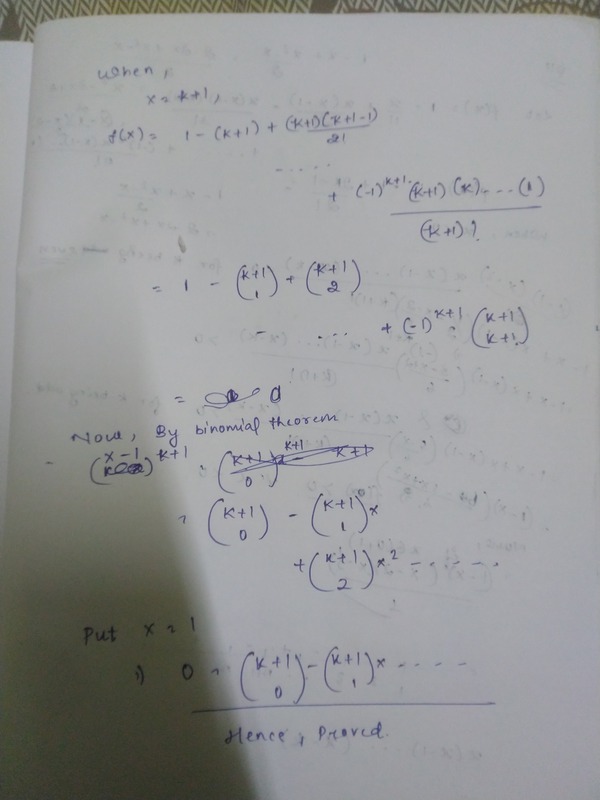 when,
x = k+1,
f(x) = 1 - (k+1) + (k+1)(k+1-1)/2!
.....
+ (-1)^{k+1} (k+1)(k)....(1)/(k+1)!
= 1 - \binom{k+1}{1} + \binom{k+1}{2}
- .... + (-1)^{k+1} \binom{k+1}{k+1}
= 0
Now, By binomial theorem
(x-1)^{k+1}
= \binom{k+1}{0} - \binom{k+1}{1} x
+ \binom{k+1}{2} x^2 - - - - -
Put x = 1
=) 0 = \binom{k+1}{0} - \binom{k+1}{1} x - - - -
Hence, Proved.